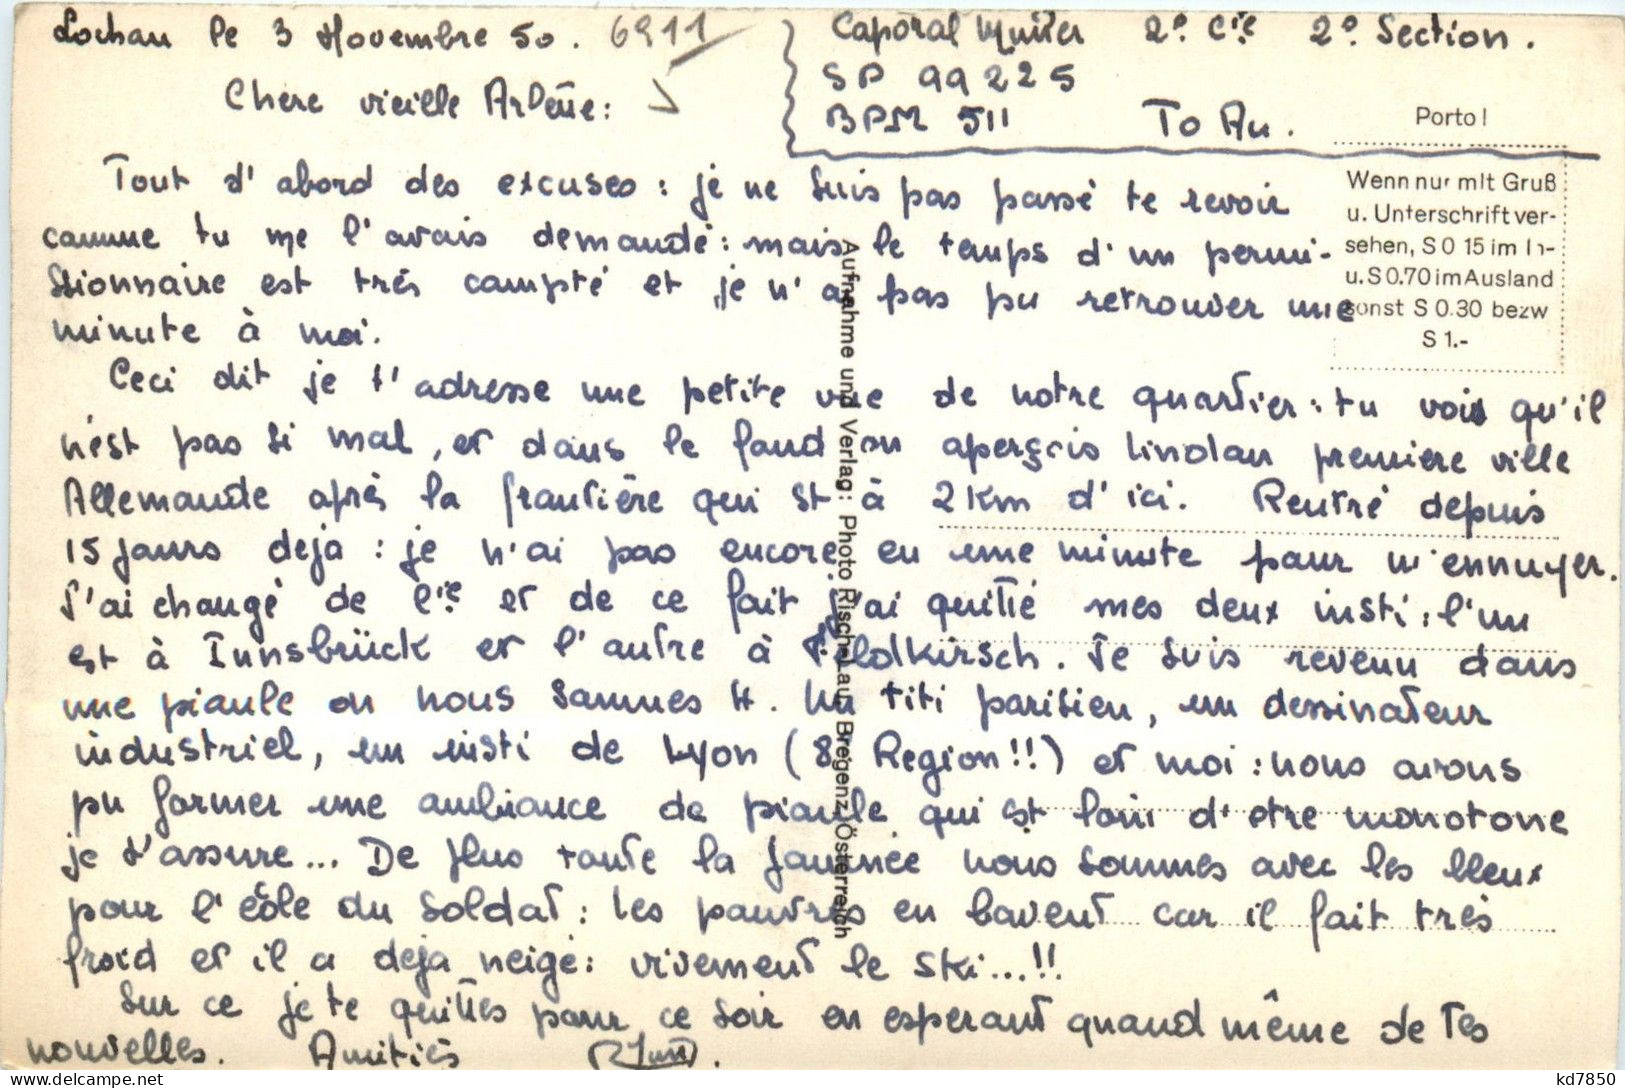 Lochau le 3 Novembre 50. 6911
Caporal Muller 2e Cie 2e Section.
SP 99225
BPM 511 To Au.
Chere vieille Arlette:
Porto!
Wenn nur mit Gruß
u. Unterschrift ver-
sehen, S 0 15 im In-
u. S 0.70 im Ausland
sonst S 0.30 bezw
S 1.-
Tout d'abord des excuses: je ne suis pas passé te revoir
comme tu me l'avais demandé: mais le temps d'un permi-
ssionnaire est très compté et je n'ai pas pu retrouver une
minute à moi.
Ceci dit je t'adresse une petite vue de notre quartier: tu vois qu'il
n'est pas si mal, et dans le fond on aperçois Lindau premiere ville
Allemande après la frontière qui st à 2 km d'ici. Rentré depuis
15 jours deja: je n'ai pas encore eu une minute pour m'ennuyer.
J'ai changé de Cie et de ce fait j'ai quitté mes deux insti: l'un
est à Innsbrück et l'autre à Feldkirsch. Je suis revenu dans
une piaule ou nous sommes 4. Un titi parisien, un dessinateur
industriel, un insti de Lyon (8e Region!!) et moi: nous avons
pu former une ambiance de piaule qui est loin d'etre monotone
je t'assure... De plus toute la journée nous sommes avec les bleux
pour l'école du soldat: les pauvres en bavent car il fait très
froid et il a deja neigé: vivement le ski...!!
Sur ce je te quittes pour ce soir en esperant quand même de tes
nouvelles. Amitiés
Aufnahme und Verlag: Photo Risch-Lau, Bregenz, Österreich
kd7850